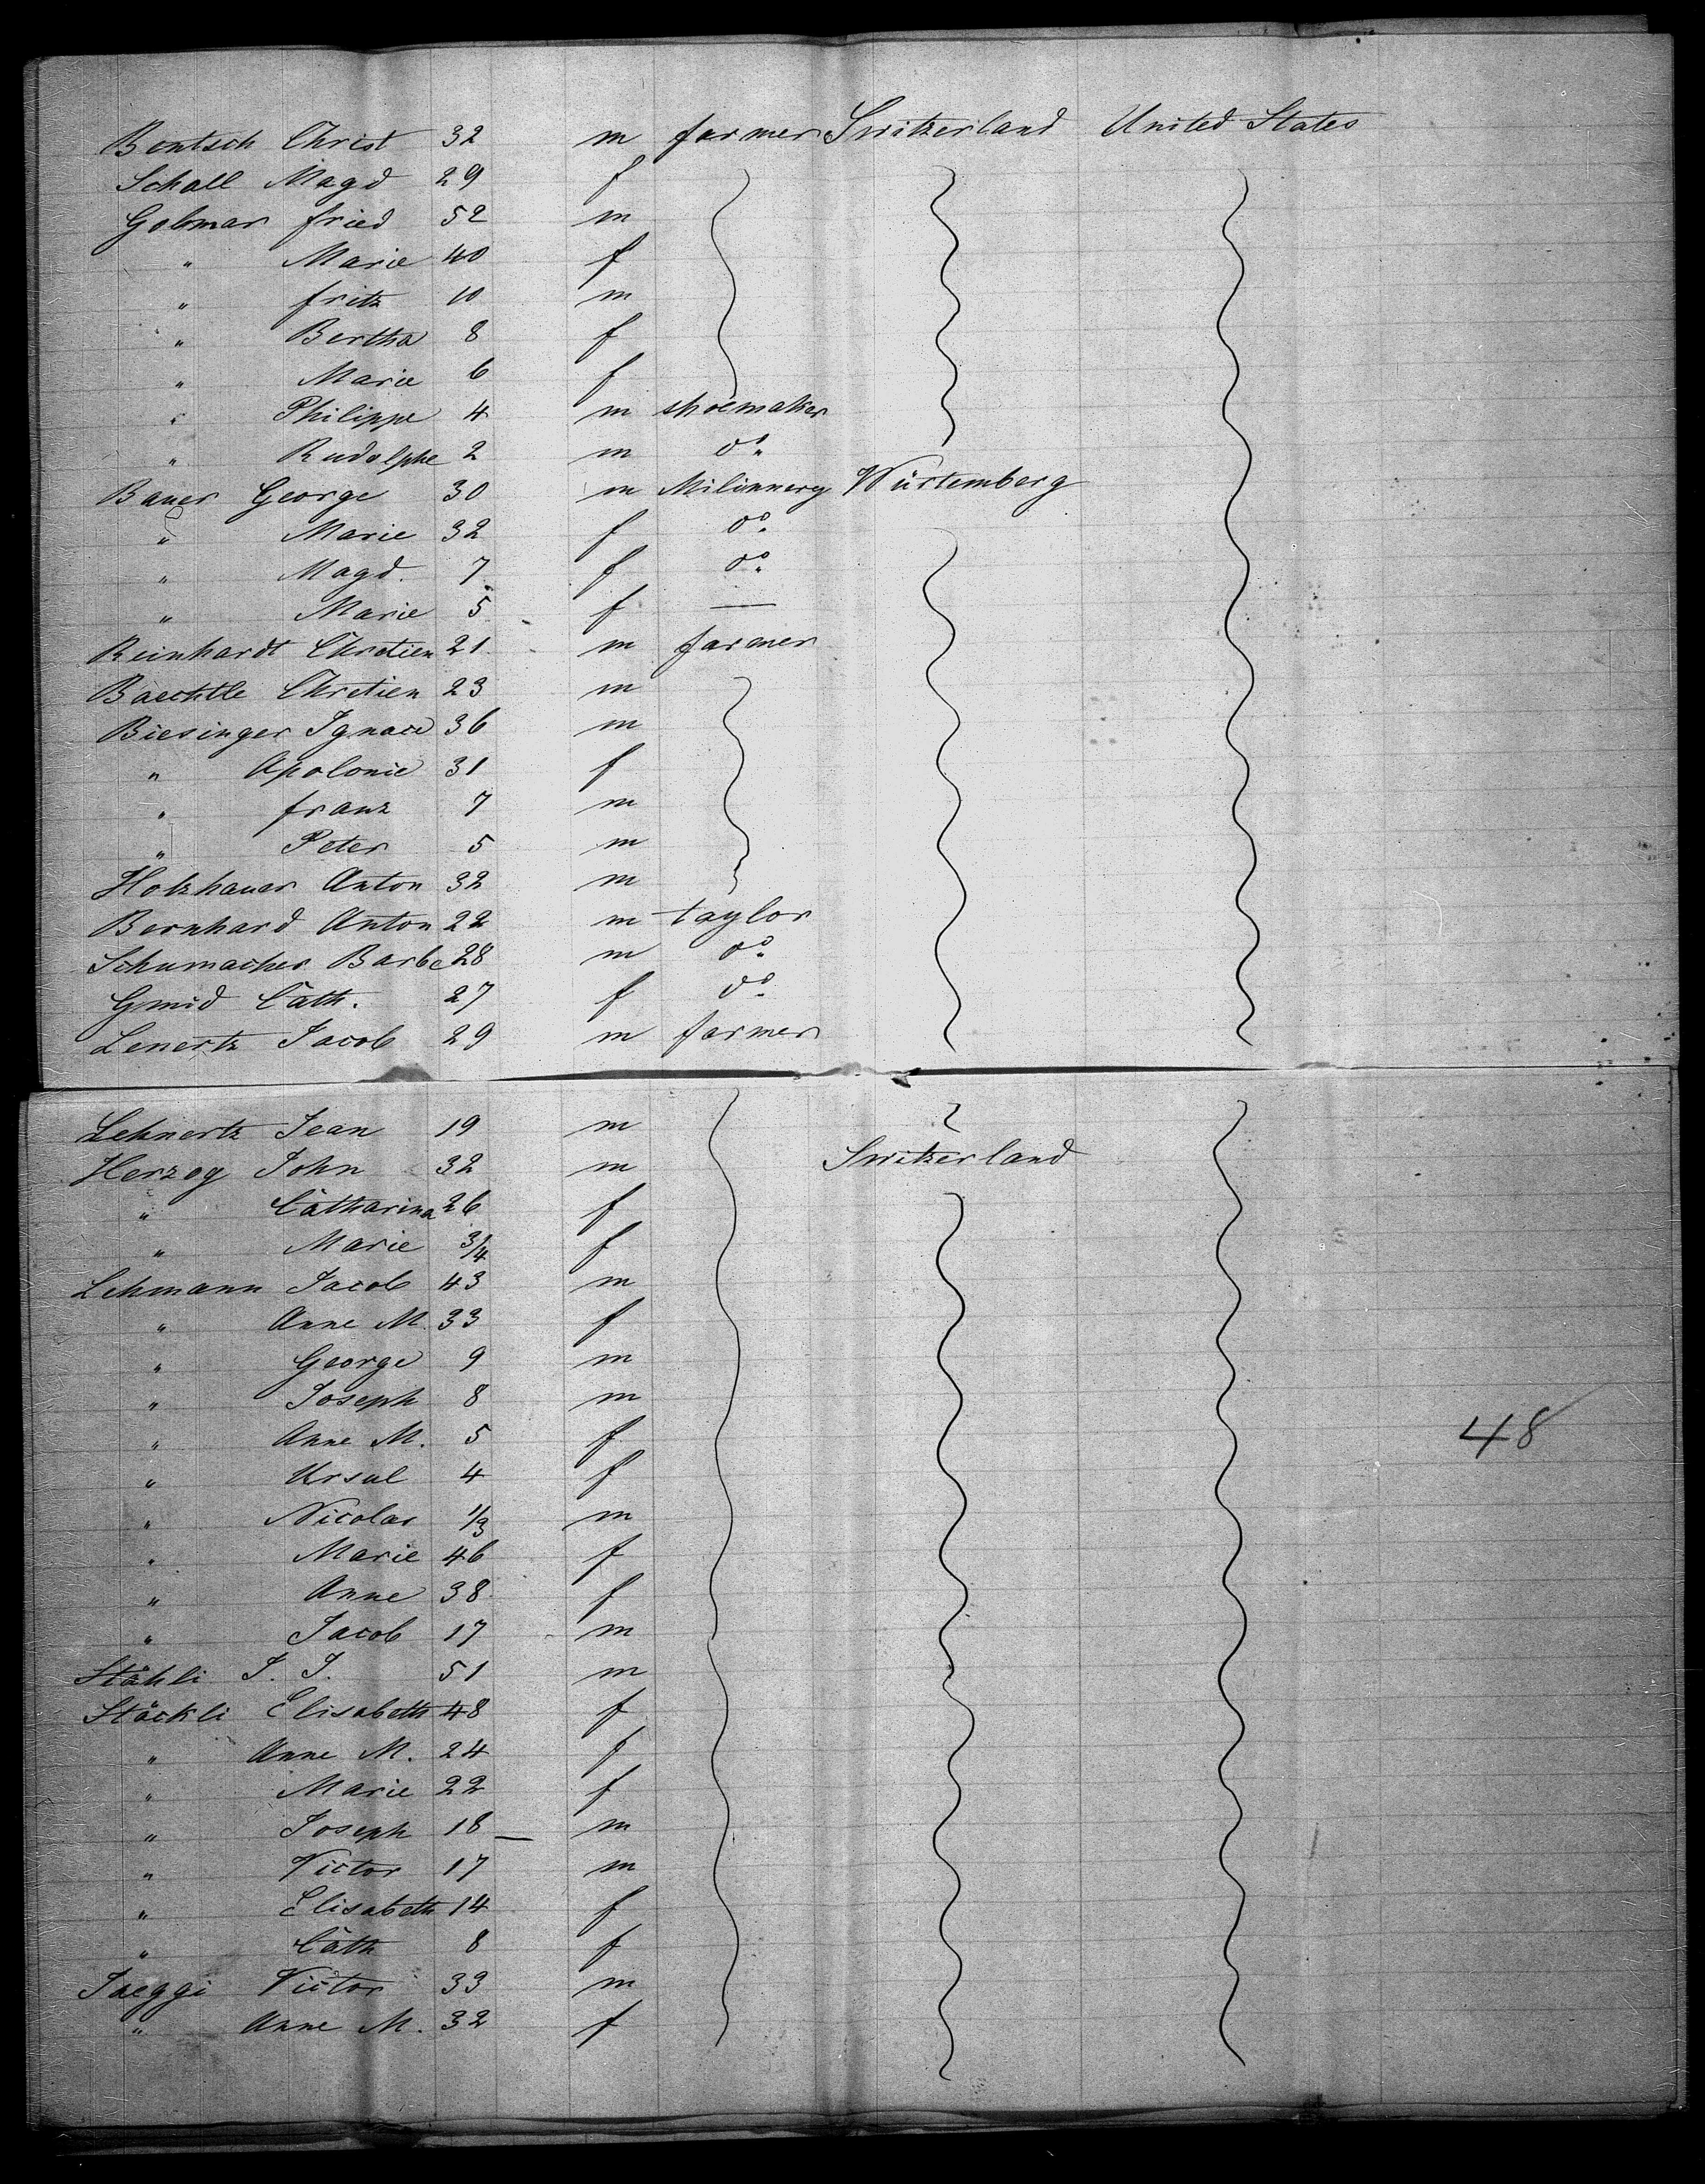 Bentsch Christ 32 m farmer Switzerland United States
Schall Magd 29 f
Golmar fried 52 m
" Marie 40 f
" fritz 10 m
" Bertha 8 f
" Marie 6 f
" Philippe 4 m shoemaker
" Rudolphe 2 m do
Bauer George 30 m Milinnery Würtemberg
" Marie 32 f do
" Magd. 7 f do
" Marie 5 f —
Reinhardt Chretien 21 m farmer
Baechtle Chretien 23 m
Biesinger Ignace 36 m
" Apolonie 31 f
" franz 7 m
" Peter 5 m
Holzhauer Anton 32 m
Bernhard Anton 22 m taylor
Schumacher Barbe 28 m do
Gmid Cath. 27 f do
Lenertz Jacob 29 m farmer
Lehnertz Jean 19 m
Herzog John 32 m Switzerland
" Catharina 26 f
" Marie 3/4 f
Lehmann Jacob 43 m
" Anne M. 33 f
" George 9 m
" Joseph 8 m
" Anne M. 5 f
48
" Ursul 4 f
" Nicolas 1/3 m
" Marie 46 f
" Anne 38 f
" Jacob 17 m
Stähli J. J. 51 m
Stäckli Elisabeth 48 f
" Anne M. 24 f
" Marie 22 f
" Joseph 18 — m
" Victor 17 m
" Elisabeth 14 f
" Cath 8 f
Jaeggi Victor 33 m
" Anne M. 32 f